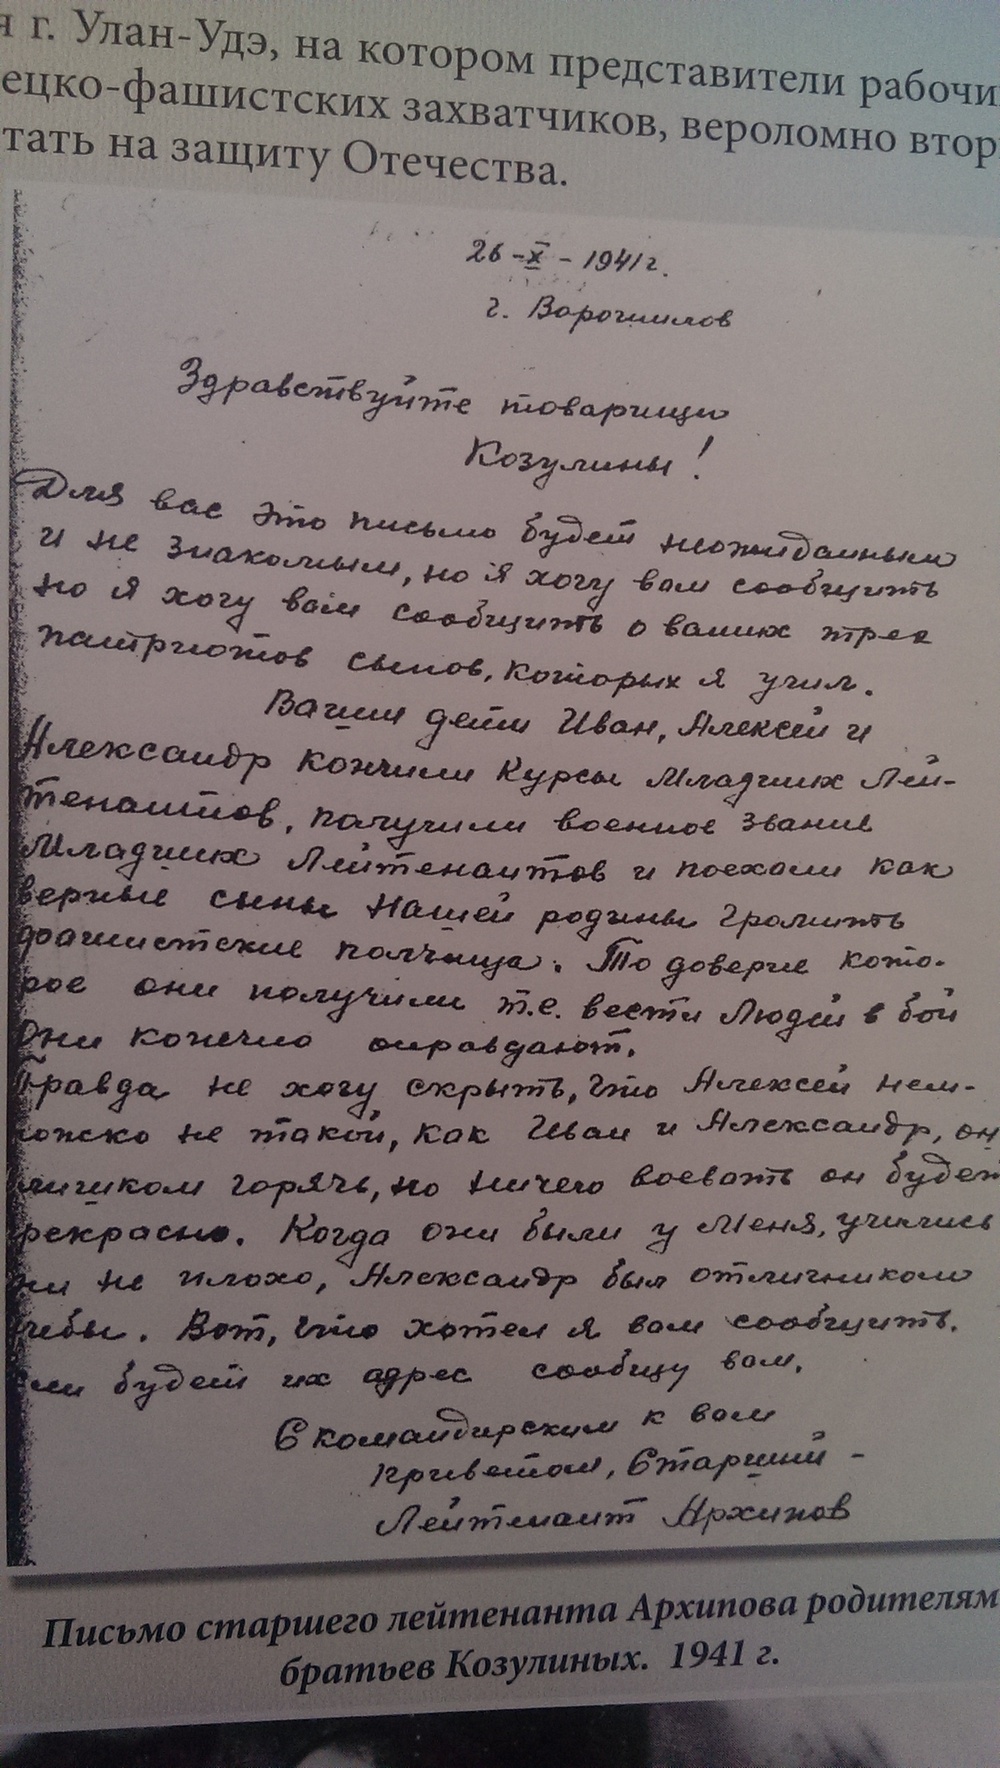 я г. Улан-Удэ, на котором представители рабочи
ецко-фашистских захватчиков, вероломно втор
тать на защиту Отечества.
26-X-1941г.
г. Ворошилов
Здравствуйте товарищи
Козулины!
Для вас это письмо будет неожиданным
и не знакомым, но я хочу вам сообщить
но я хочу вам сообщить о ваших трех
патриотов сынов, которых я учил.
Ваши дети Иван, Алексей и
Александр кончили Курсы Младших Лей-
тенантов, получили военное звание
Младших Лейтенантов и поехали как
верные сыны Нашей родины громить
фашистские полчища. То доверие кото-
рое они получили т.е. вести Людей в бой
Они конечно оправдают.
Правда не хочу скрыть, что Алексей нем-
ожско не такой, как Иван и Александр, он
лишком горячь, но ничего воевать он будет
рекрасно. Когда они были у Меня, учились
ни не плохо, Александр был отличником
чебы. Вот, что хотел я вам сообщить.
сли будет их адрес сообщу вам.
С командирским к вам
приветом, Старший -
Лейтенант Архипов
Письмо старшего лейтенанта Архипова родителям
братьев Козулиных. 1941 г.